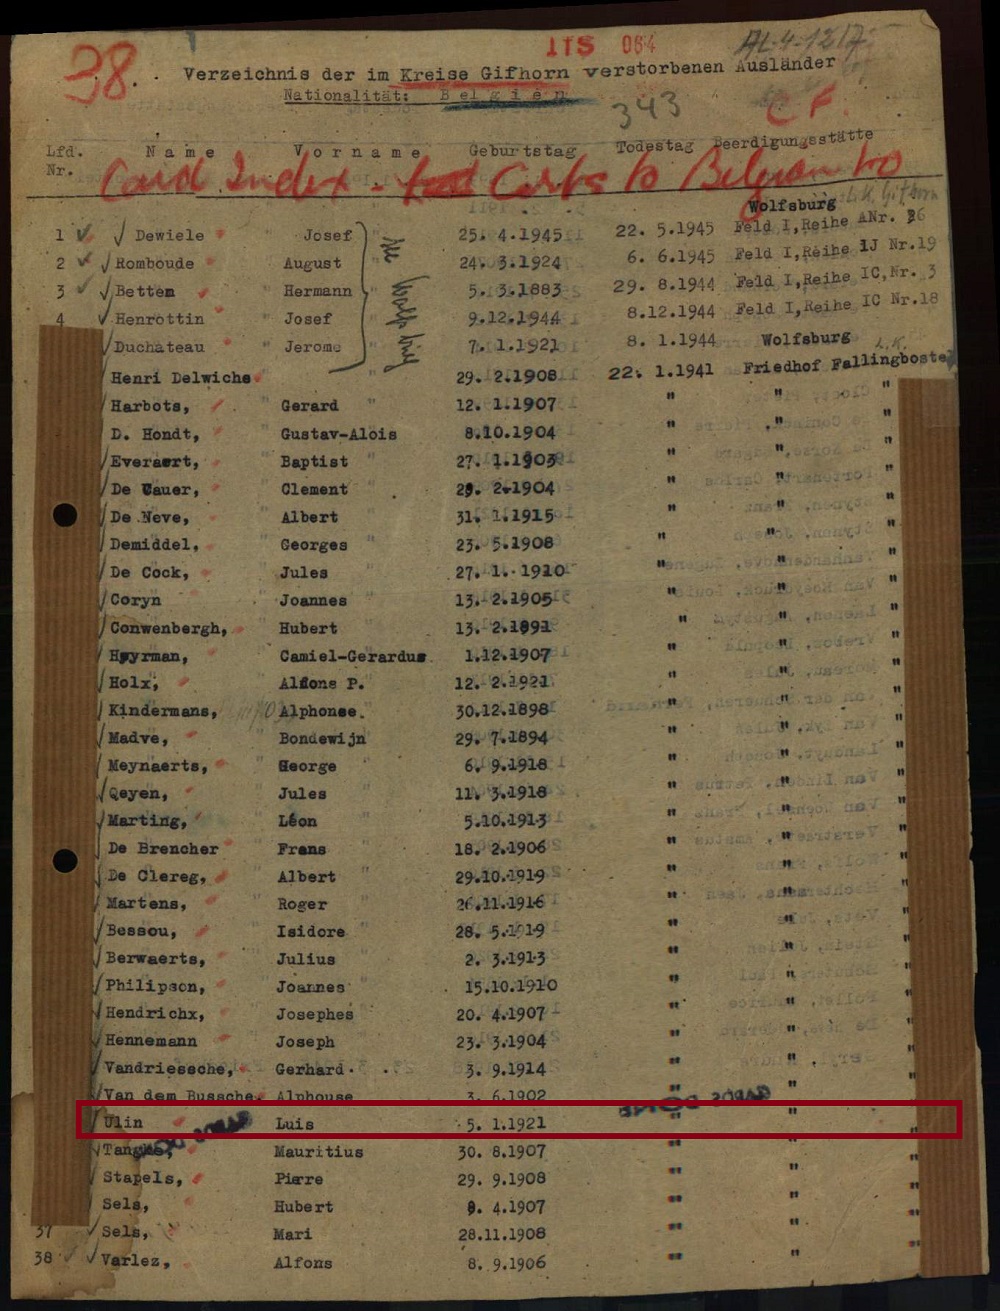 ITS 064
AL-4-1217
38.
Verzeichnis der im Kreise Gifhorn verstorbenen Ausländer
Nationalität: Belgien
343
C F.
Lfd. Nr. Name Vorname Geburtstag Todestag Beerdigungsstätte
Card Index - Certs to Belgian
Wolfsburg
1 Dewiele Josef 25. 4.1945 22. 5.1945 Feld I,Reihe ANr. 26
2 Romboude August 24. 3.1924 6. 6.1945 Feld I,Reihe 1J Nr.19
3 Betten Hermann 5. 3.1883 29. 8.1944 Feld I,Reihe IC,Nr. 3
4 Henrottin Josef 9.12.1944 8.12.1944 Feld I,Reihe IC Nr.18
Duchateau Jerome 7. 1.1921 8. 1.1944 Wolfsburg
L.K.
Henri Delwiche 29. 2.1908 22. 1.1941 Friedhof Fallingbostel
Harbots, " Gerard " 12. 1.1907 " " "
D. Hondt, Gustav-Alois 8.10.1904 " " "
Everaert, Baptist 27. 1.1903 " " "
De Cauer, Clement 29. 2.1904 " " "
De Neve, Albert 31. 1.1915 " " "
Demiddel, Georges 23. 5.1908 " " "
De Cock, Jules 27. 1. 1910 " " "
Coryn Joannes 13. 2.1905 " "
Conwenbergh, Hubert 13. 2.1891 " " "
Heyrman, Camiel-Gerardus 1.12.1907 " " "
Holx, Alfons P. 12. 2.1921 " " "
Kindermans, Alphonse. 30.12.1898 " " "
Madve, Bondewijn 29. 7.1894 " " "
Meynaerts, George 6. 9.1918 " " "
Qeyen, Jules 11. 3.1918 " " "
Marting, Léon 5.10.1913 " " "
De Brencher Frans 18. 2.1906 " " "
De Clereg, Albert 29.10.1919 " " "
Martens, Roger 26.11.1916 " " "
Bessou, Isidore 28. 5.1919 " " "
Berwaerts, Julius 2. 3.1913 " " "
Philipson, Joannes 15.10.1910 " " "
Hendrichx, Josephes 20. 4.1907 " " "
Hennemann Joseph 23. 3.1904 " " "
Vandriessche, Gerhard 3. 9.1914 " " "
Van dem Bussche, Alphouse 3. 6.1902 " " "
Ulin Luis 5. 1.1921 " " "
Tanghe, Mauritius 30. 8.1907 " " "
Stapels, Pierre 29. 9.1908 " " "
Sels, Hubert 9. 4.1907 " " "
37 Sels, Mari 28.11.1908 " " "
38 Varlez, Alfons 8. 9.1906 " "